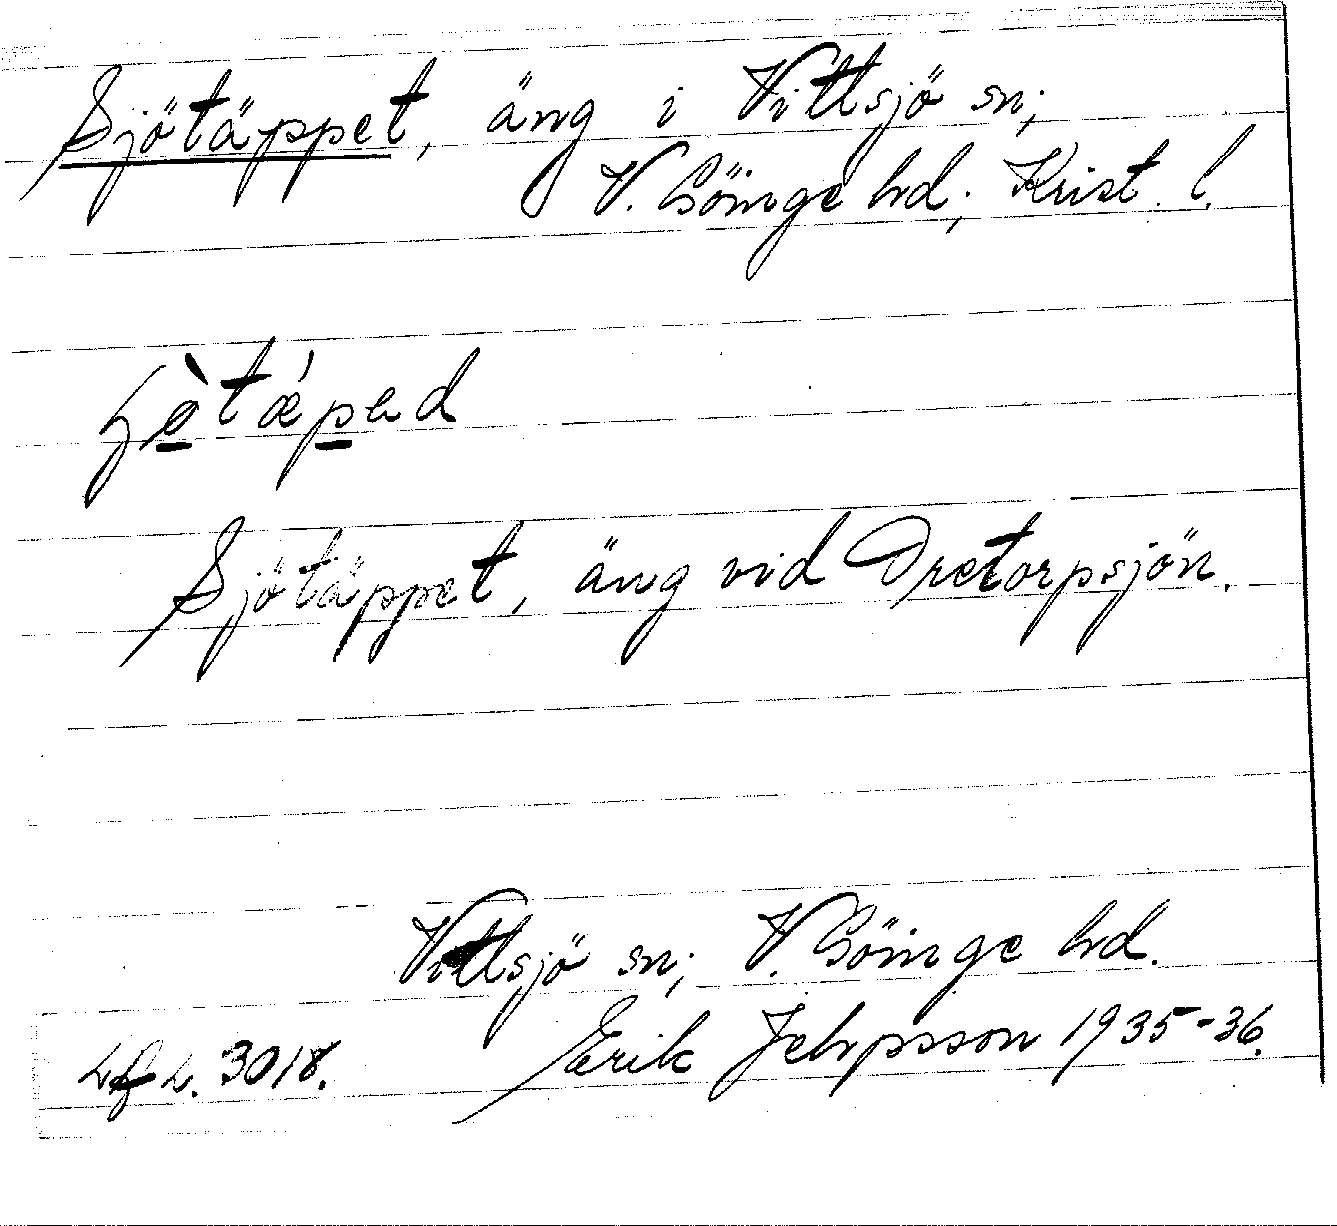 Sjötäppet, äng i Vittsjö sn;
V. Göinge hd; Krist. l.
Sjötäppet, äng vid Dretorpsjön.
Vittsjö sn; V. Göinge hd.
3018. Erik Jeppsson 1935-36.